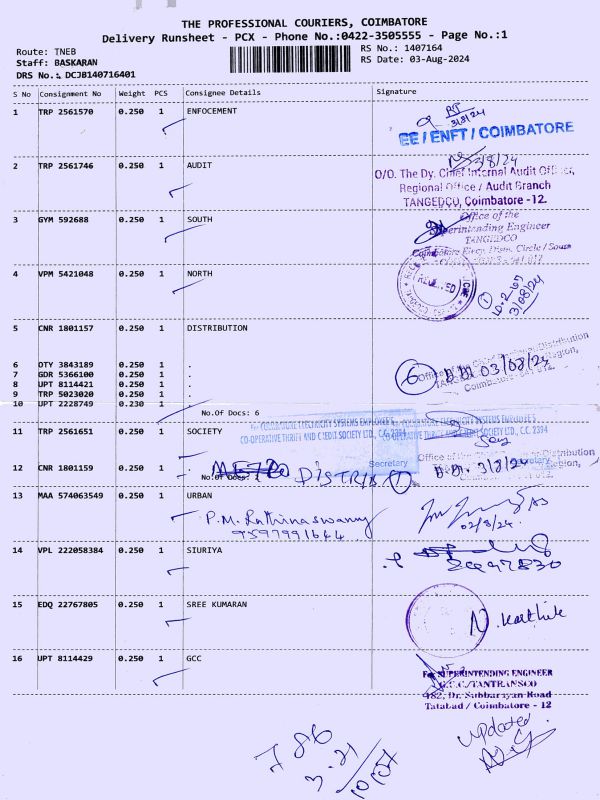 THE PROFESSIONAL COURIERS, COIMBATORE
Delivery Runsheet - PCX - Phone No.:0422-3505555 - Page No.:1
Route: TNEB
RS No.: 1407164
Staff: BASKARAN
RS Date: 03-Aug-2024
DRS No.: DCJB140716401
S No Consignment No Weight PCS Consignee Details Signature
1 TRP 2561570 0.250 1 ENFOCEMENT
3/8/24
EE / ENFT / COIMBATORE
2 TRP 2561746 0.250 1 AUDIT
3/8/24
O/O. The Dy. Chief Internal Audit Officer,
Regional Office / Audit Branch
TANGEDCO, Coimbatore -12.
3 GYM 592688 0.250 1 SOUTH
Office of the
Superintending Engineer
TANGEDCO
Coimbatore Elecy. Distn. Circle / South
4 VPM 5421048 0.250 1 NORTH
3/08/24
5 CNR 1801157 0.250 1 DISTRIBUTION
6 DTY 3843189 0.250 1 .
7 GDR 5366100 0.250 1 .
8 UPT 8114421 0.250 1 .
9 TRP 5023020 0.250 1 .
10 UPT 2228749 0.230 1 .
6 03/08/24
No.Of Docs: 6
11 TRP 2561651 0.250 1 SOCIETY
COIMBATORE ELECTRICITY SYSTEMS EMPLOYEE'S
CO-OPERATIVE THRIFT AND CREDIT SOCIETY LTD., C.C. 2394
Secretary
12 CNR 1801159 0.250 1
1 3/8/24
13 MAA 574063549 0.250 1 URBAN
P.M. Rathinaswamy
9597991644
02/8/24
14 VPL 222058384 0.250 1 SIURIYA
15 EDQ 22767805 0.250 1 SREE KUMARAN
N. Karthik
16 UPT 8114429 0.250 1 GCC
For SUPERINTENDING ENGINEER
G.C.C/TANTRANSCO
182, Dr. Subbarayan Road
Tatabad / Coimbatore - 12
updated
786